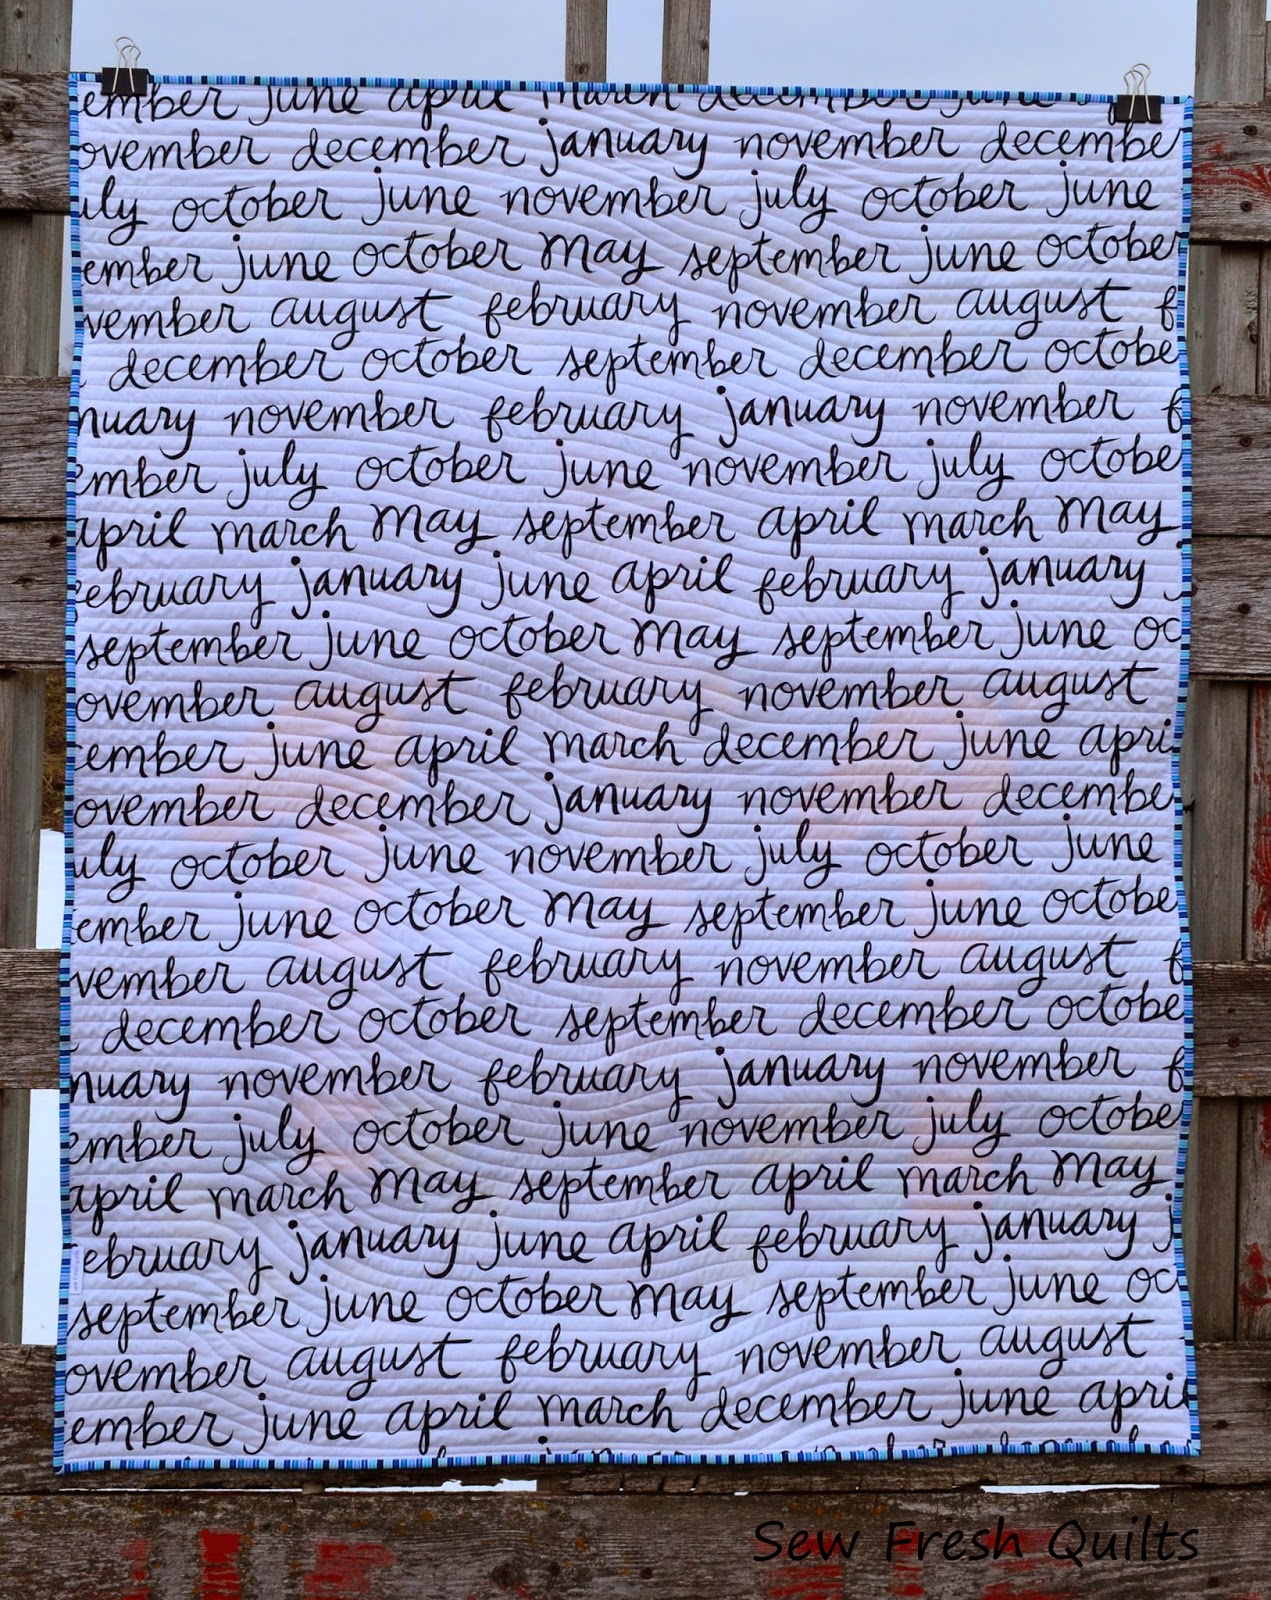 ember june april march december june
ovember december january november decembe
uly october june november july october june
ember june october may september june october
vember august february november august f
december october september december octobe
nuary november february january november f
ember july october june november july octobe
april march may september april march may
ebruary january june april february january
september june october may september june oc
ovember august february november august
cember june april march december june apri
ovember december january november decembe
uly october june november july october june
ember june october may september june octobe
vember august february november august f
december october september december octobe
nuary november february january november f
ember july october june november july octobe
april march may september april march may
ebruary january june april february january j
september june october may september june oc
ovember august february november august
ember june april march december june april
Sew Fresh Quilts